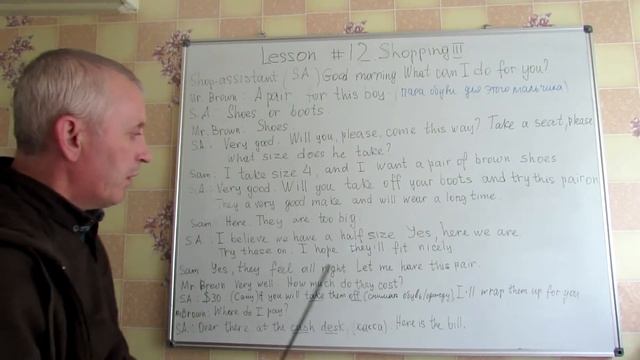 Lesson #12 Shopping III
Shop-assistant (SA) Good morning What can I do for you?
Mr. Brown: A pair for this boy (пара обуви для этого мальчика)
S.A: Shoes or boots.
Mr. Brown: Shoes
SA: Very good. Will you, please, come this way? Take a seat, please
What size does he take?
Sam: I take size 4, and I want a pair of brown shoes
SA: Very good. Will you take off your boots and try this pair on
They a very good make and will wear a long time.
Sam: Here. They are too big.
S.A: I believe we have a half size Yes, here we are.
Try these on. I hope they'll fit nicely
Sam Yes, they feel all right Let me have this pair.
Mr Brown Very well. How much do they cost?
SA: $30 (Сэму) if you will take them off (снимать обувь/одежду) I'll wrap them up for you
mBrown: Where do I pay?
SA: Over there at the cash desk. (касса). Here is the bill.